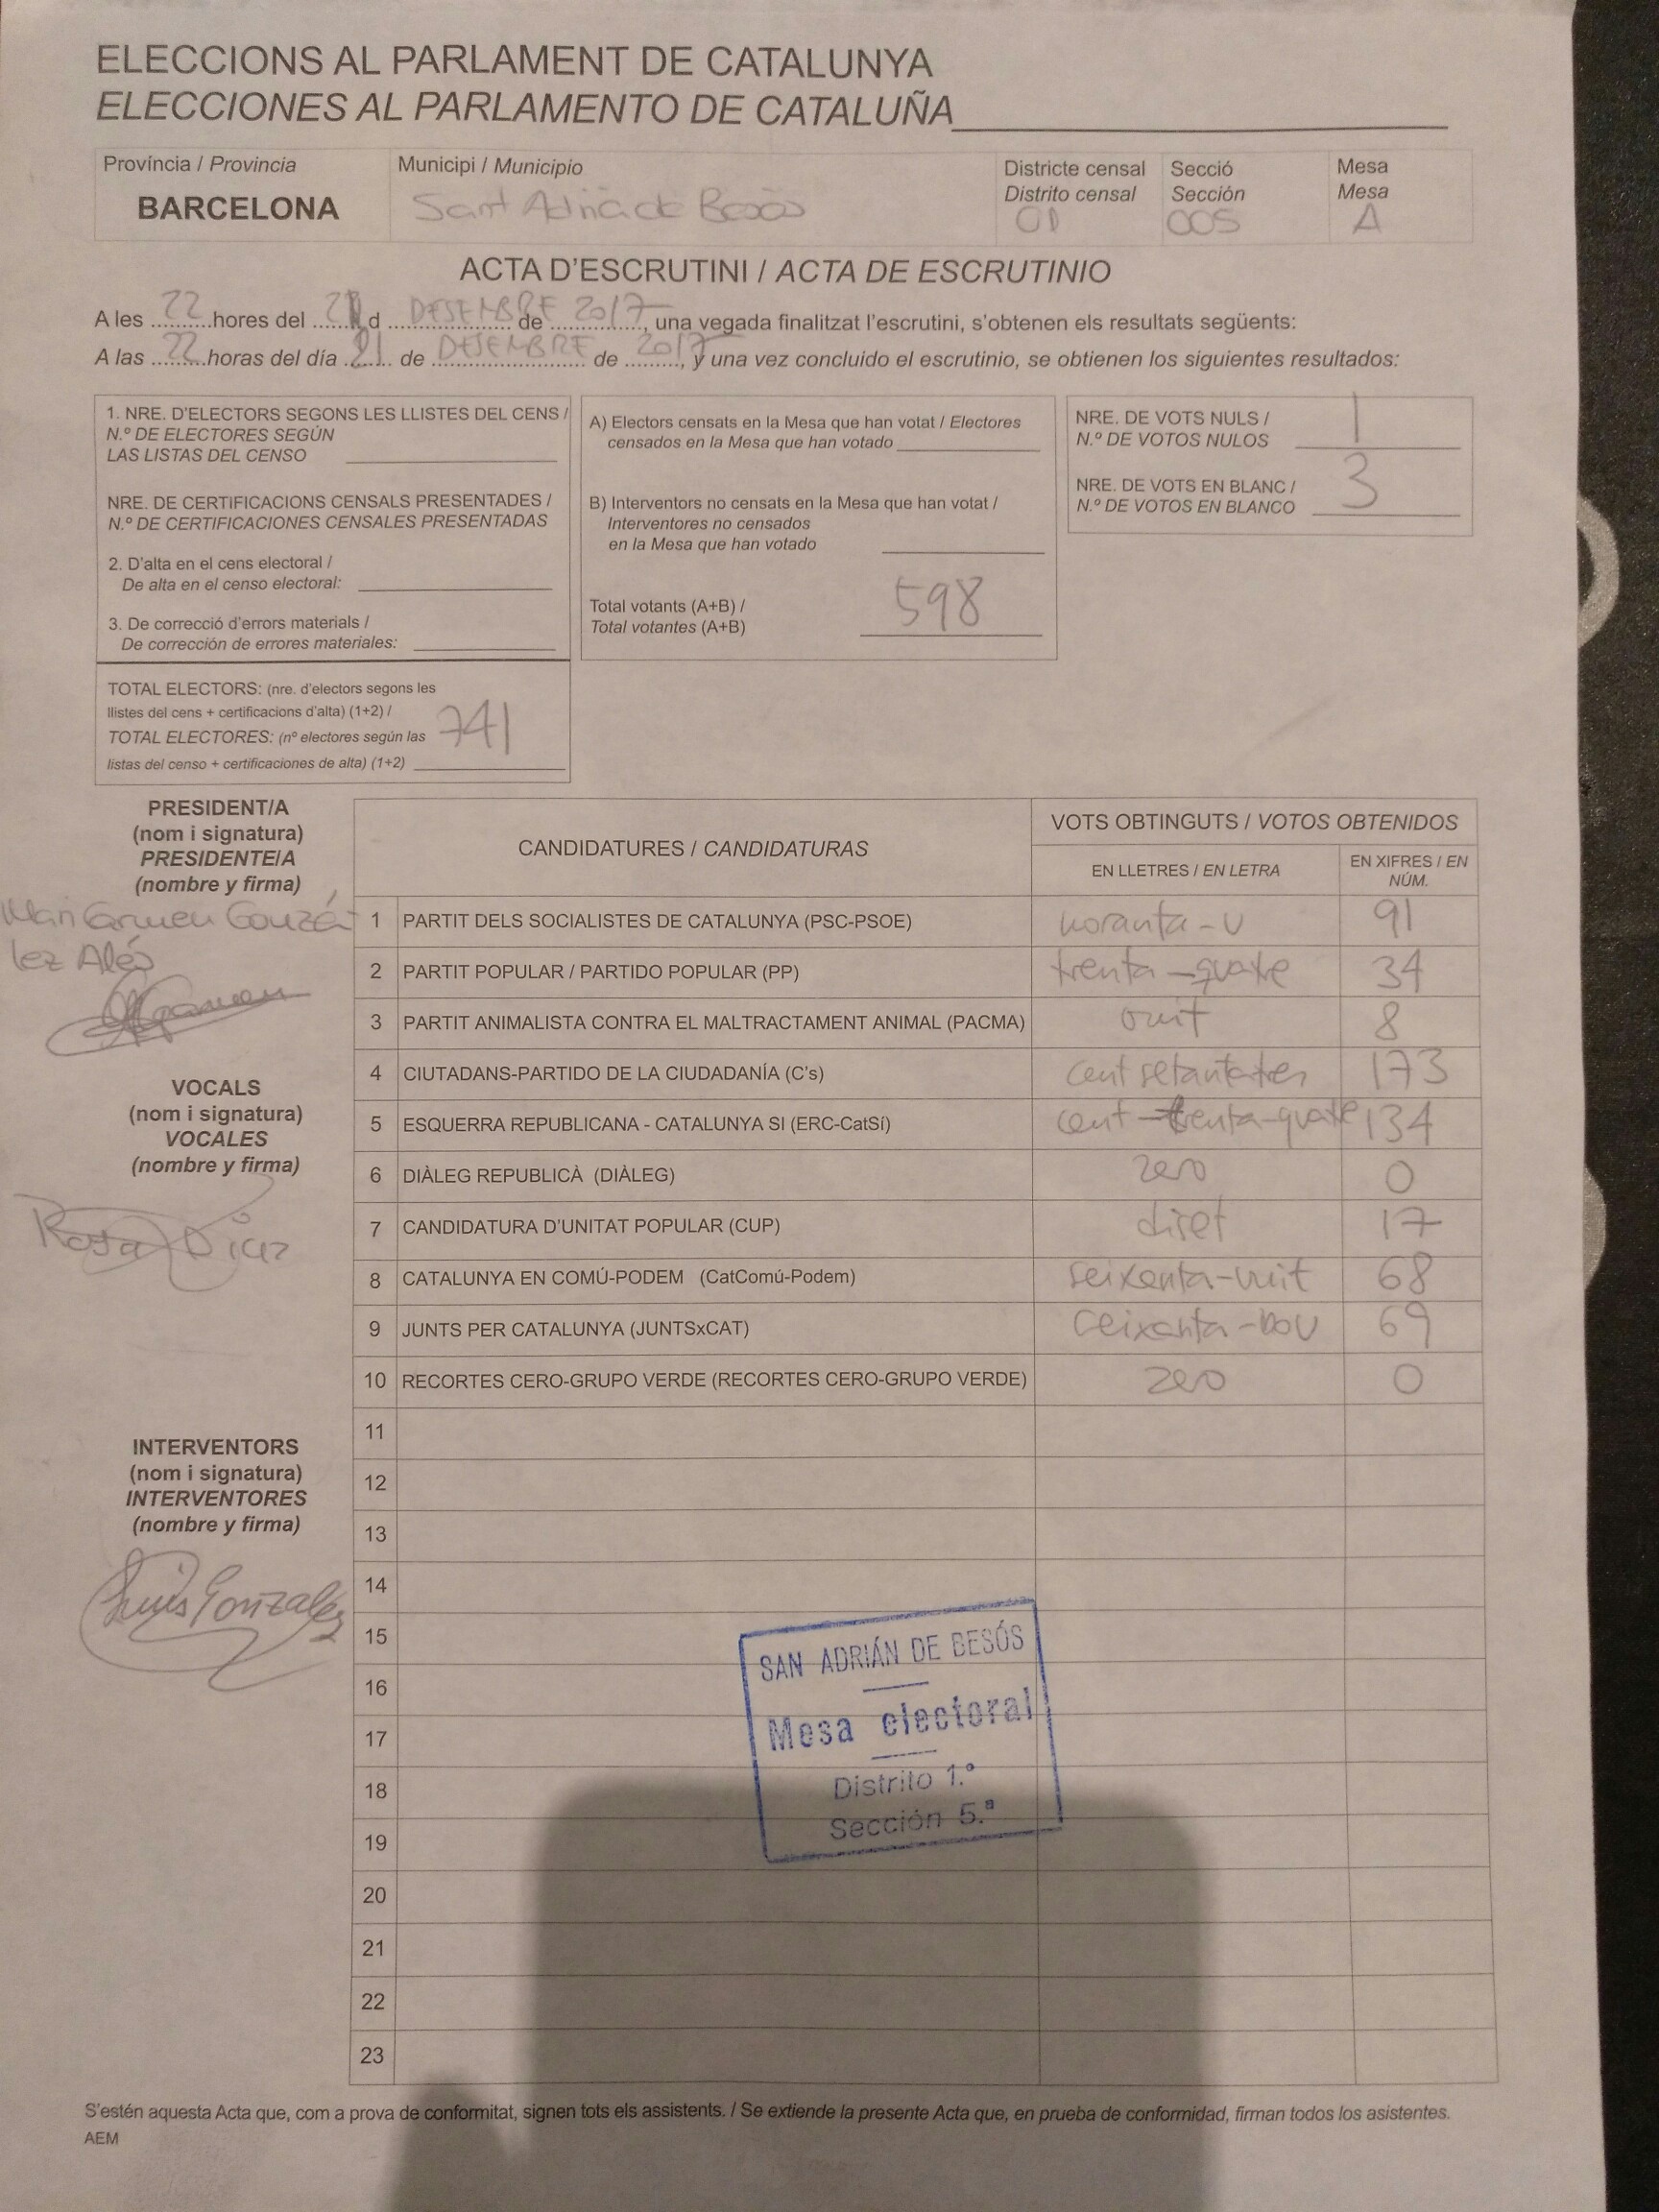 ELECCIONS AL PARLAMENT DE CATALUNYA
ELECCIONES AL PARLAMENTO DE CATALUÑA
Província / Provincia
Municipi / Municipio
Districte censal
Distrito censal
Secció
Sección
Mesa
Mesa
BARCELONA
Sant Adrià de Besòs
01
005
A
ACTA D'ESCRUTINI / ACTA DE ESCRUTINIO
A les 22 hores del 21 d DESEMBRE de 2017, una vegada finalitzat l'escrutini, s'obtenen els resultats següents:
A las 22 horas del día 21 de DESEMBRE de 2017, y una vez concluido el escrutinio, se obtienen los siguientes resultados:
1. NRE. D'ELECTORS SEGONS LES LLISTES DEL CENS /
N.º DE ELECTORES SEGÚN
LAS LISTAS DEL CENSO
NRE. DE CERTIFICACIONS CENSALS PRESENTADES /
N.º DE CERTIFICACIONES CENSALES PRESENTADAS
2. D'alta en el cens electoral /
De alta en el censo electoral:
3. De correcció d'errors materials /
De corrección de errores materiales:
TOTAL ELECTORS: (nre. d'electors segons les
llistes del cens + certificacions d'alta) (1+2) /
TOTAL ELECTORES: (nº electores según las
listas del censo + certificaciones de alta) (1+2)
741
A) Electors censats en la Mesa que han votat / Electores
censados en la Mesa que han votado
B) Interventors no censats en la Mesa que han votat /
Interventores no censados
en la Mesa que han votado
Total votants (A+B) /
Total votantes (A+B)
598
NRE. DE VOTS NULS /
N.º DE VOTOS NULOS
1
NRE. DE VOTS EN BLANC /
N.º DE VOTOS EN BLANCO
3
PRESIDENT/A
(nom i signatura)
PRESIDENTE/A
(nombre y firma)
Mari Carmen Gonzá
lez Alés
VOCALS
(nom i signatura)
VOCALES
(nombre y firma)
Rosa Díaz
INTERVENTORS
(nom i signatura)
INTERVENTORES
(nombre y firma)
Luis Gonzalez
CANDIDATURES / CANDIDATURAS
VOTS OBTINGUTS / VOTOS OBTENIDOS
EN LLETRES / EN LETRA
EN XIFRES / EN
NÚM.
1 PARTIT DELS SOCIALISTES DE CATALUNYA (PSC-PSOE) noranta-u 91
2 PARTIT POPULAR / PARTIDO POPULAR (PP) trenta-quatre 34
3 PARTIT ANIMALISTA CONTRA EL MALTRACTAMENT ANIMAL (PACMA) vuit 8
4 CIUTADANS-PARTIDO DE LA CIUDADANÍA (C's) cent setanta tres 173
5 ESQUERRA REPUBLICANA - CATALUNYA SI (ERC-CatSí) cent-trenta-quatre 134
6 DIÀLEG REPUBLICÀ (DIÀLEG) zero 0
7 CANDIDATURA D'UNITAT POPULAR (CUP) diset 17
8 CATALUNYA EN COMÚ-PODEM (CatComú-Podem) seixenta-vuit 68
9 JUNTS PER CATALUNYA (JUNTSxCAT) ceixanta-nou 69
10 RECORTES CERO-GRUPO VERDE (RECORTES CERO-GRUPO VERDE) zero 0
11
12
13
14
15
16
17
18
19
20
21
22
23
SAN ADRIÁN DE BESÓS
Mesa electoral
Distrito 1.º
Sección 5.ª
S'estén aquesta Acta que, com a prova de conformitat, signen tots els assistents. / Se extiende la presente Acta que, en prueba de conformidad, firman todos los asistentes.
AEM